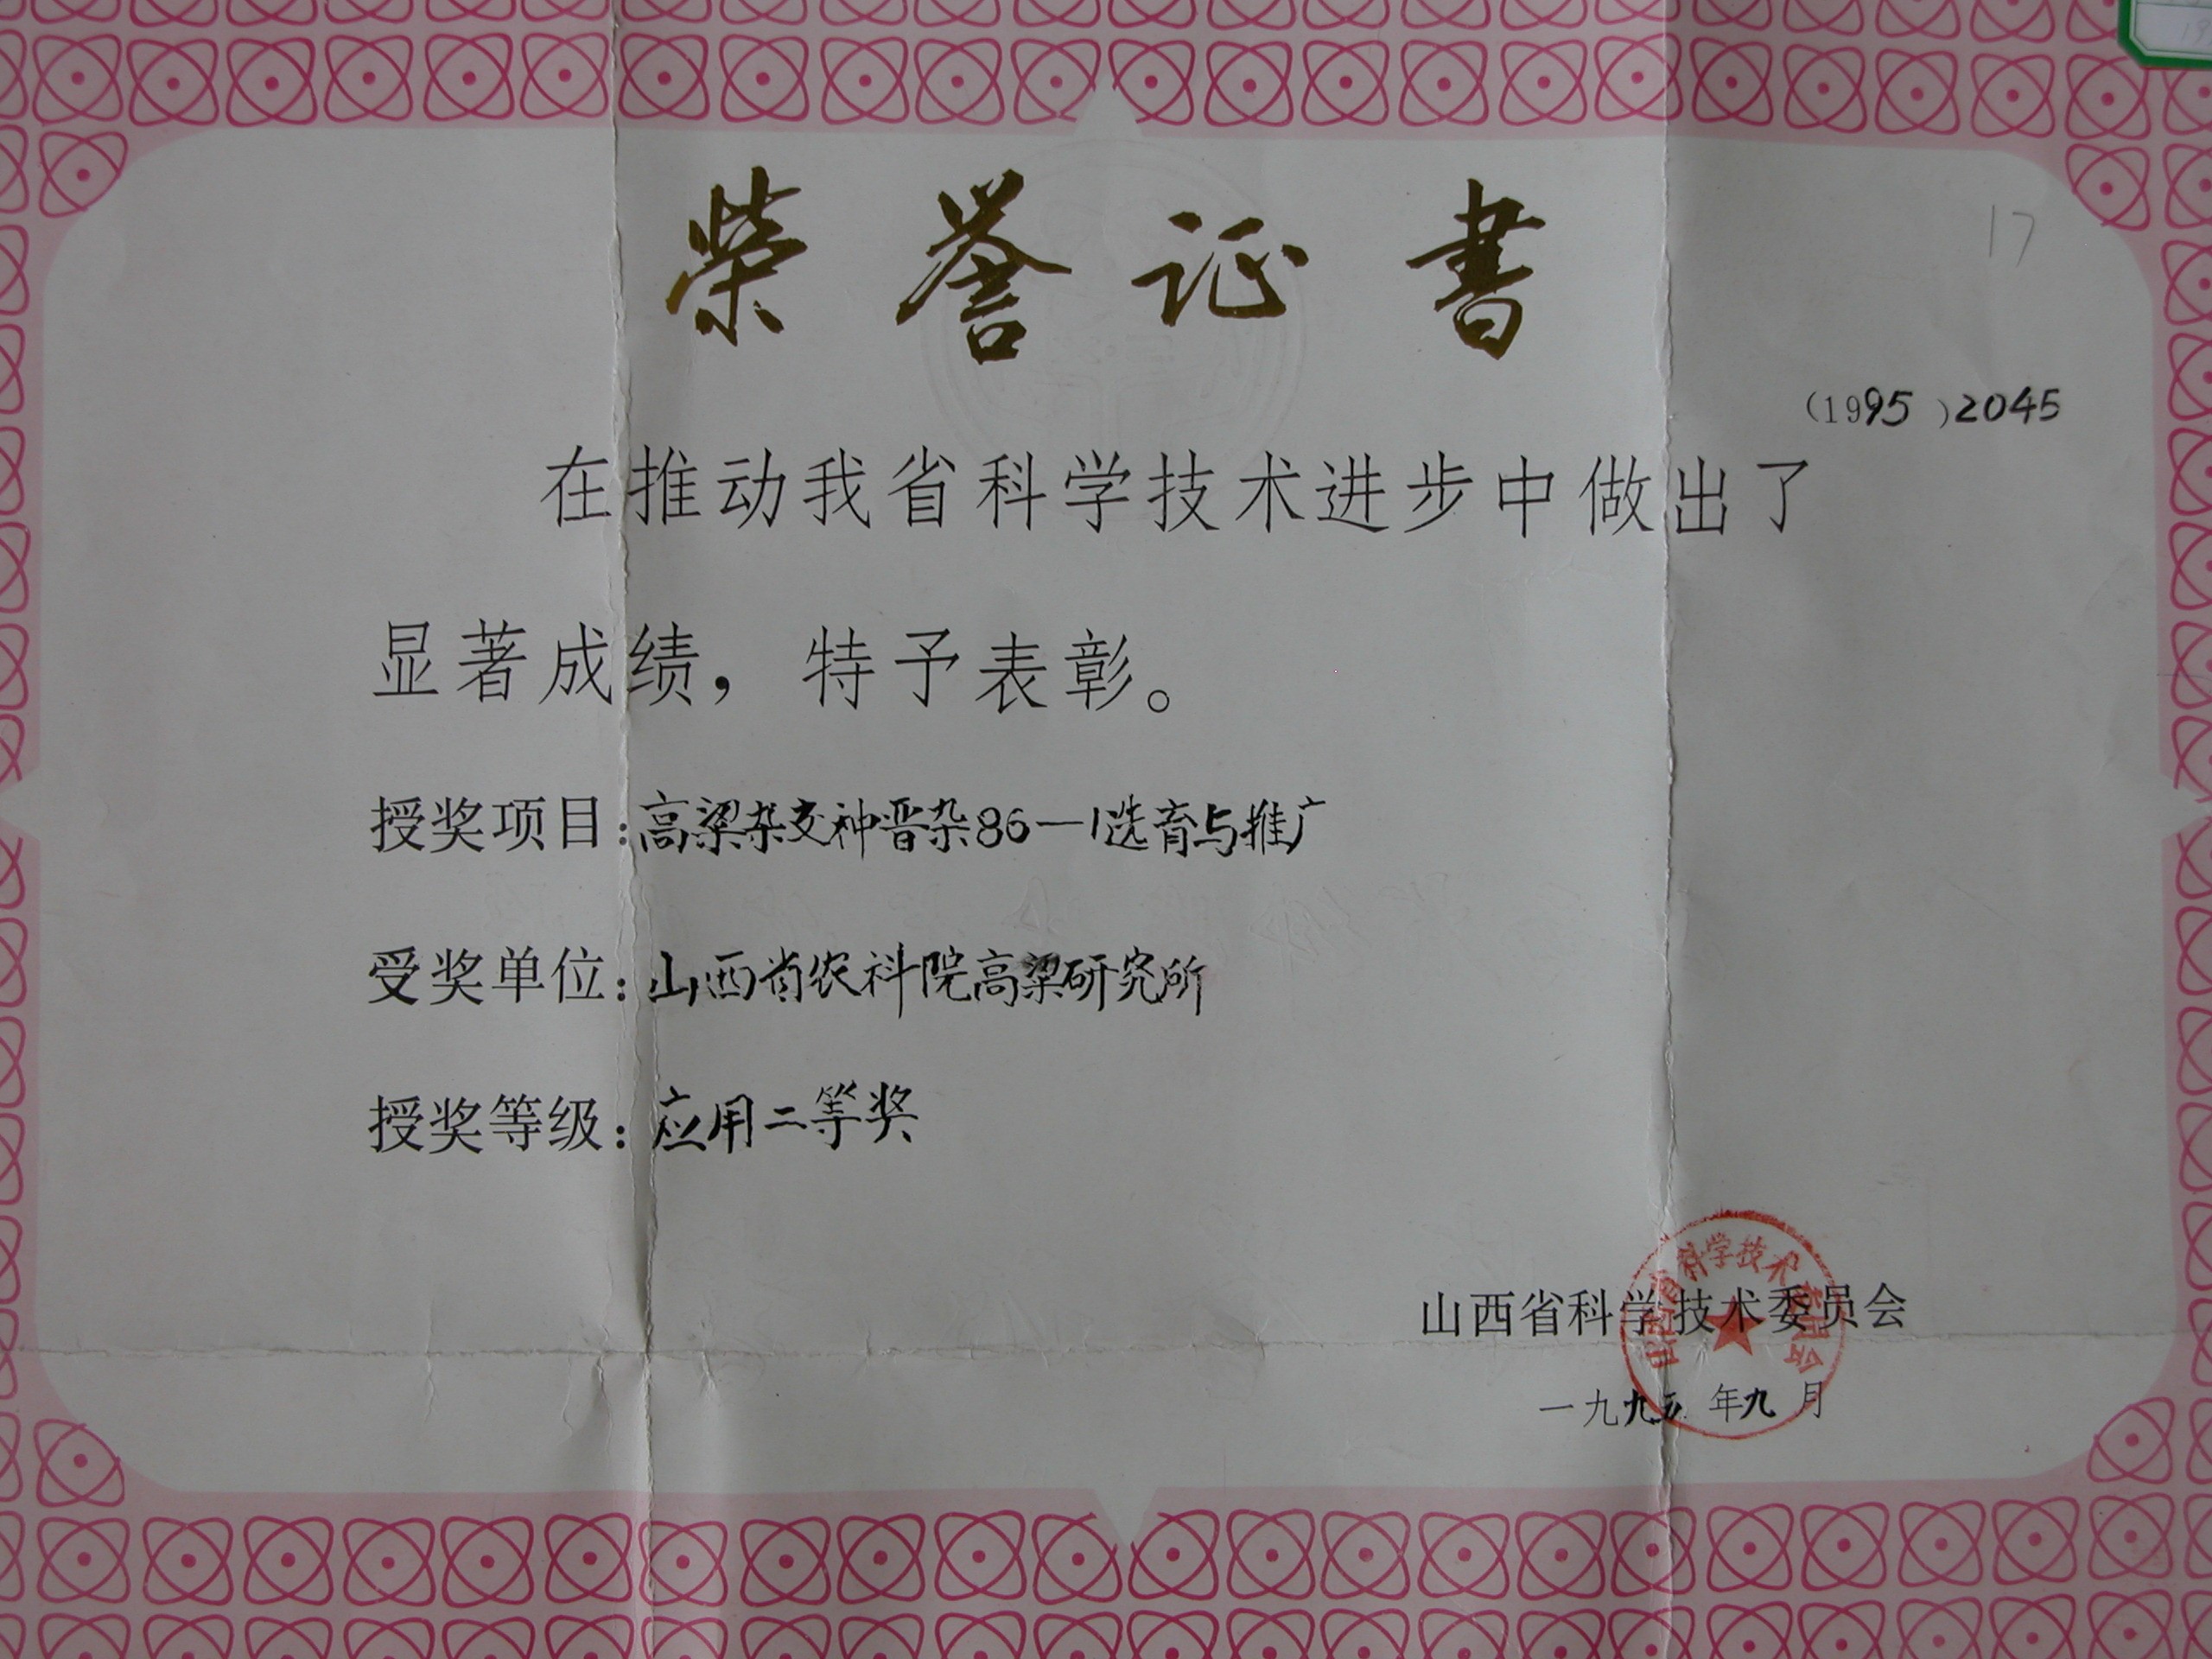 荣誉证书
17
(1995)2045
在推动我省科学技术进步中做出了
显著成绩，特予表彰。
授奖项目:高梁杂交种晋杂86—1选育与推广
受奖单位:山西省农科院高梁研究所
授奖等级:应用二等奖
山西省科学技术委员会
山西省科学技术委员会
一九九五年九月